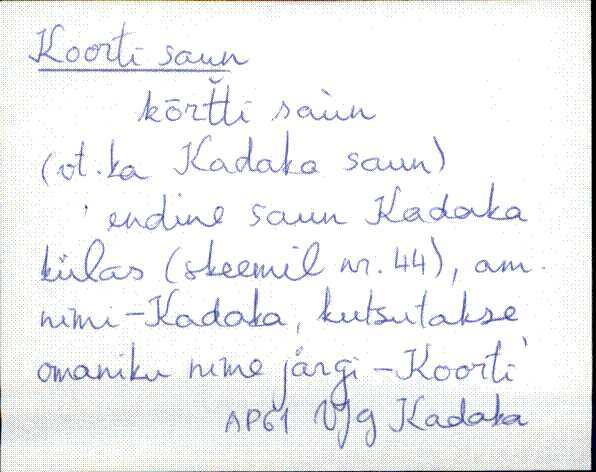 Koorti saun
kōrt̆ti saùn
(vt. ka Kadaka saun)
endine saun Kadaka
külas (skeemil nr. 44), am.
nimi - Kadaka, kutsutakse
omaniku nime järgi - Koorti
AP61 VJg Kadaka